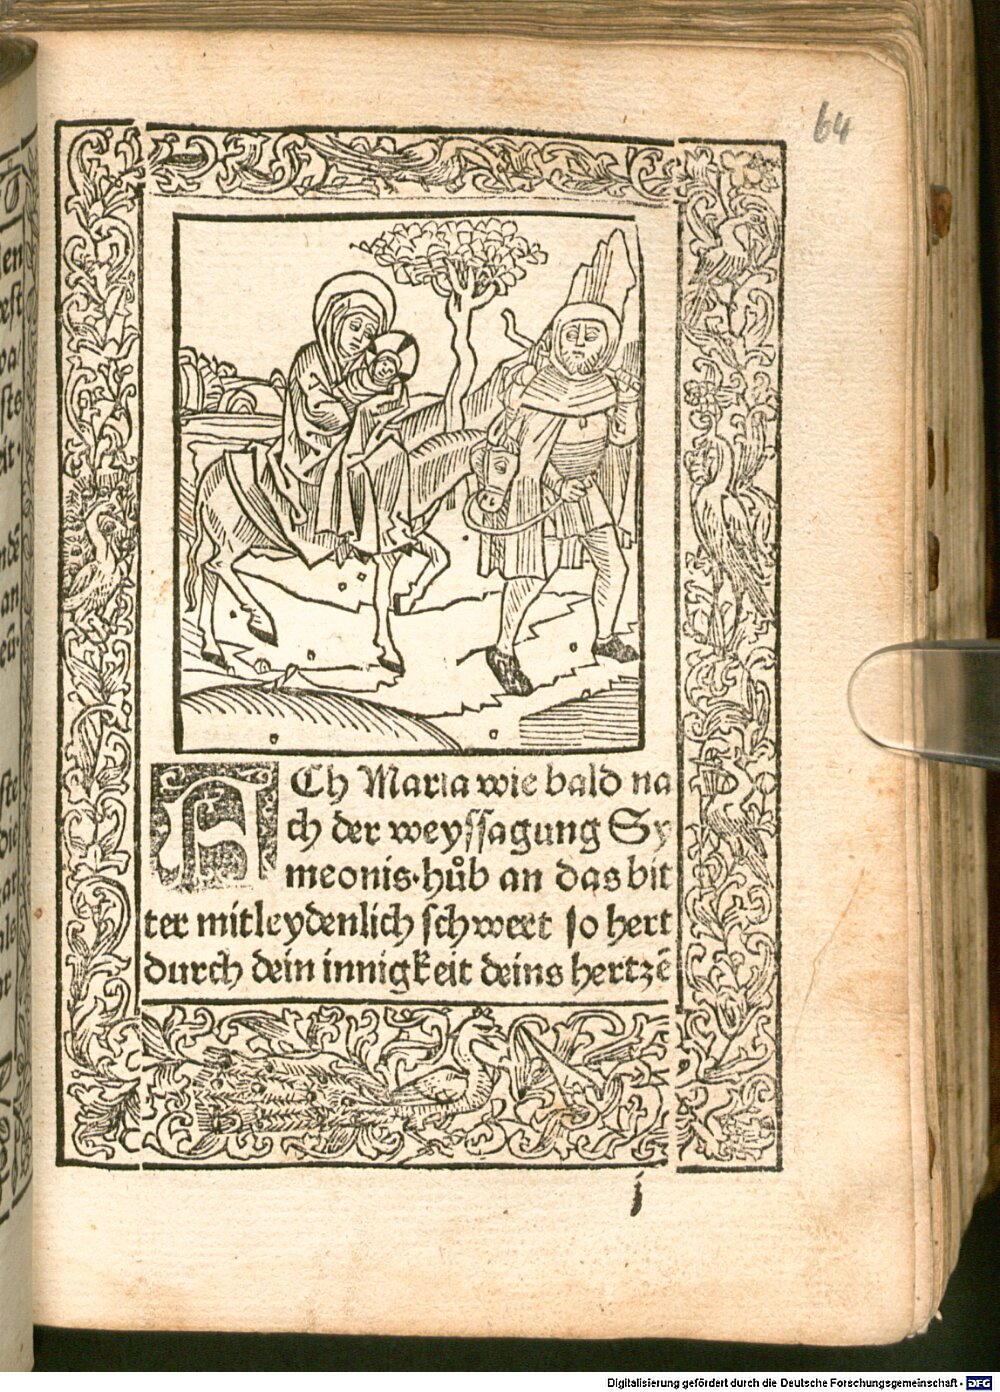 64
ACh Maria wie bald na
ch der weyssagung Sy
meonis·hůb an das bit
ter mitleydenlich schwert so hert
durch dein innigkeit deins hertzē
j
Digitalisierung gefördert durch die Deutsche Forschungsgemeinschaft - DFG